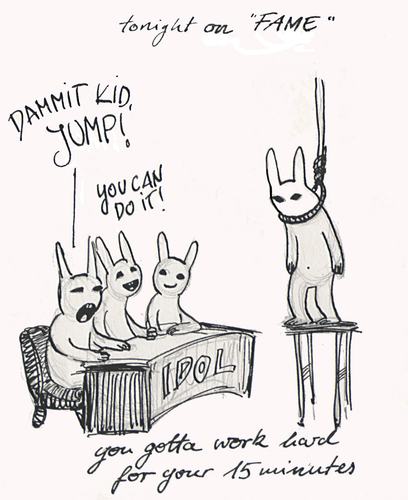 tonight on "FAME"
DAMMIT KID,
JUMP!
YOU CAN
DO IT!
IDOL
you gotta work hard
for your 15 minutes